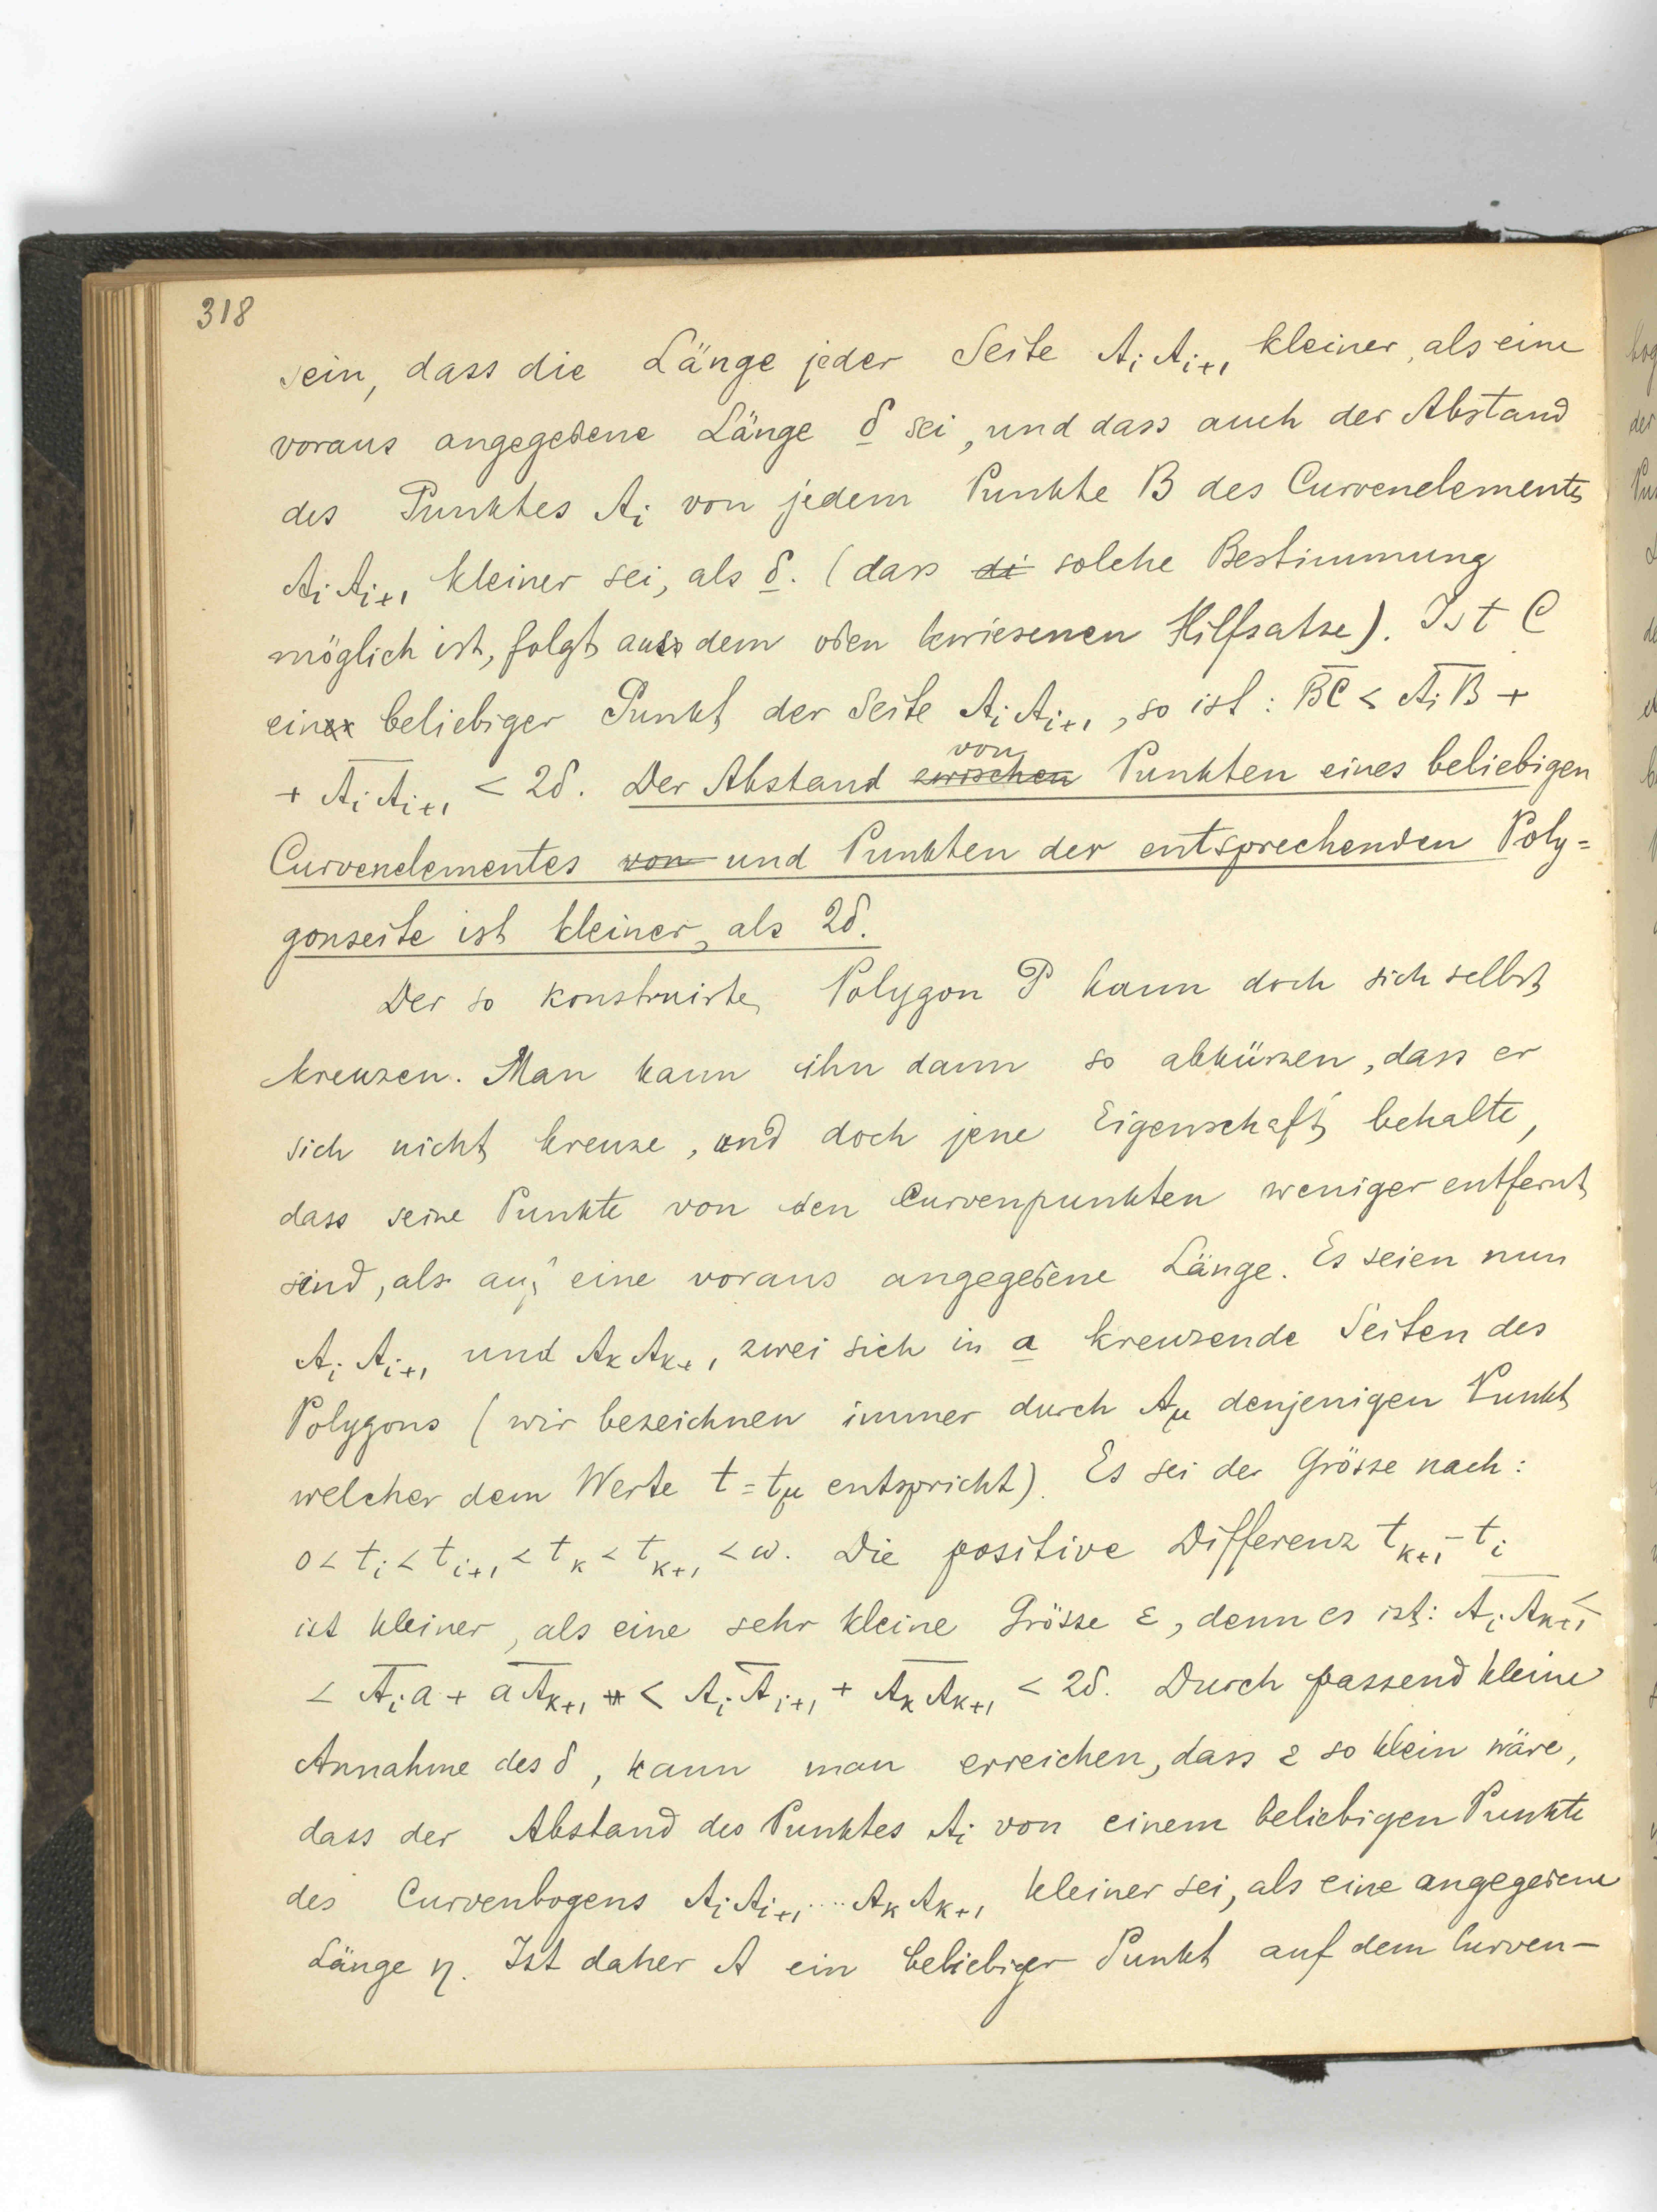 318
sein, dass die Länge jeder Seite AᵢAᵢ₊₁ kleiner, als eine
voraus angegebene Länge δ sei, und dass auch der Abstand
des Punktes Aᵢ von jedem Punkte B des Curvenelements
AᵢAᵢ₊₁ kleiner sei, als δ. (dass ~~di~~ solche Bestimmung
möglich ist, folgt aus dem oben bewiesenen Hilfsatze). Ist C
ein beliebiger Punkt der Seite AᵢAᵢ₊₁, so ist: B̅C̅ < A̅ᵢB̅ +
+ A̅ᵢA̅ᵢ₊₁ < 2δ. Der Abstand ~~zwischen~~ von Punkten eines beliebigen
Curvenelementes ~~von~~ und Punkten der entsprechenden Poly=
gonseite ist kleiner, als 2δ.
Der so konstruirte Polygon P kann doch sich selbst
kreuzen. Man kann ihn dann so abkürzen, dass er
sich nicht kreuze, und doch jene Eigenschaft behalte,
dass seine Punkte von den Curvenpunkten weniger entfernt
sind, als auf eine voraus angegebene Länge. Es seien nun
AᵢAᵢ₊₁ und AₖAₖ₊₁ zwei sich in a kreuzende Seiten des
Polygons (wir bezeichnen immer durch A_μ denjenigen Punkt
welcher dem Werte t = t_μ entspricht). Es sei der Grösse nach:
0 < tᵢ < tᵢ₊₁ < tₖ < tₖ₊₁ < ω. Die positive Differenz tₖ₊₁ - tᵢ
ist kleiner, als eine sehr kleine Grösse ε, denn es ist: A̅ᵢA̅ₖ₊₁ <
< A̅ᵢa̅ + a̅A̅ₖ₊₁ < A̅ᵢA̅ᵢ₊₁ + A̅ₖA̅ₖ₊₁ < 2δ. Durch passend kleine
Annahme des δ, kann man erreichen, dass ε so klein wäre,
dass der Abstand des Punktes Aᵢ von einem beliebigen Punkte
des Curvenbogens AᵢAᵢ₊₁....AₖAₖ₊₁ kleiner sei, als eine angegebene
Länge η. Ist daher A ein beliebiger Punkt auf dem Curven-